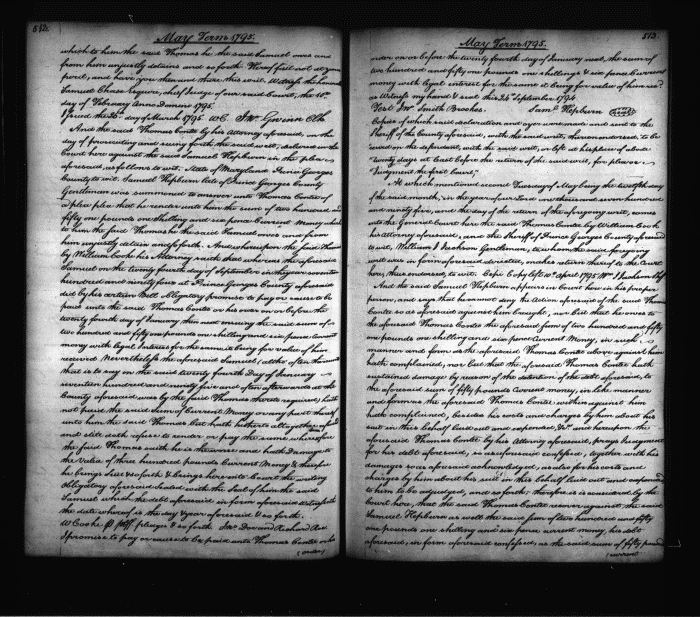 512.
May Term 1795.
which to him the said Thomas he the said Samuel owes and
from him unjustly detains and so forth. Hereof fail not at your
peril, and have you then and there this writ. Witness the honble
Samuel Chase Esquire, chief Judge of our said Court, the 10th
day of February Anno Domini 1795.
Issued the day of March 1795 WC Jno Gwinn Clk
And the said Thomas Contee by his Attorney aforesaid, on the
day of prosecuting and suing forth the said writ, declared in the
Court here against the said Samuel Hepburn in the plea
aforesaid, as follows to wit. State of Maryland Prince Georges
County to wit. Samuel Hepburn late of Prince Georges County
Gentleman was summoned to answer unto Thomas Contee of
a plea that he render unto him the sum of two hundred and
fifty one pounds one shilling and six pence Current Money which
to him the said Thomas he the said Samuel owes and from
him unjustly detain and so forth. And whereupon the said Thomas
by William Cooke his Attorney saith that whereas the aforesaid
Samuel on the twenty fourth day of September in the year seventeen
hundred and ninety four at Prince Georges County aforesaid
did by his certain Bill Obligatory promise to pay or cause to be
paid unto the said Thomas Contee or his order on or before the
twenty fourth day of January then next ensuing the said sum of
two hundred and fifty one pounds one shilling and six pence Current
money with legal Interest for the same it being for value of him
received Nevertheless the aforesaid Samuel, altho' often thereunto
that is to say on the said twenty fourth Day of January
seventeen hundred and ninety five and often afterwards at the
County aforesaid was by the said Thomas thereto required, hath
not paid the said sum of Current Money or any part thereof
unto him the said Thomas but hath hitherto altogether refused
and still doth refuse to render or pay the same wherefore
the said Thomas saith he is the worse and hath Damage to
the Value of three hundred pounds Current Money & thereupon
he brings Suit & so forth & brings here into Court the writing
Obligatory aforesaid Sealed with the Seal of him the said
Samuel which the debt aforesaid in form aforesaid
the date whereof is the day & year aforesaid & so forth.
W Cooke pltff pledges & so forth Jno Doe and Richard Roe.
I promise to pay or cause to be paid unto Thomas Contee or his
(order)
513
May Term 1795.
order on or before the twenty fourth day of January next, the sum of
two hundred and fifty one pounds one shillings & six pence Current
money with legal interest for the same it being for value of him
as Witness my hand & seal this 24 September 1794
Test Jno Smith Brookes. Saml Hepburn (seal)
Copies of which said declaration and were made and sent to the
Sheriff of the County aforesaid, with the said writ, thereon endorsed, to be
served on the defendant, with the said writ, or left at his place of abode
twenty days at least before the return of the said writ, for plea or
Judgment the first Court."
At which mentioned second Tuesday of May being the twelfth day
of the said month, in the year of our Lord one thousand seven hundred
and ninety five, and the day of the return of the aforegoing writ, comes
into the General Court here the said Thomas Contee by William Cook
his attorney aforesaid; and the Sheriff of Prince Georges County aforesaid
to wit, William I Jackson Gentleman, to whom the said foregoing
writ was in form aforesaid directed, makes return thereof to the Court
here, thus endorsed, to wit. Cepi Copy left 10th april 1795 Wm I Jackson Shff
And the said Samuel Hepburn appears in Court here in his proper
person, and says that he cannot deny the Action aforesaid of the said Thomas
Contee so as aforesaid against him brought, nor but that he owes to
the aforesaid Thomas Contee the aforesaid sum of two hundred and fifty
one pounds one shilling and six pence Current Money, in such
manner and form as the aforesaid Thomas Contee above against him
hath complained, nor but that the aforesaid Thomas Contee hath
sustained damage by reason of the detention of the debt aforesaid, to
the aforesaid sum of fifty pounds Current money, in like manner
and form as the aforesaid Thomas Contee within against him
hath complained, besides his costs and charges by him about his
suit in this behalf laid out and expended; And hereupon the
aforesaid Thomas Contee by his Attorney aforesaid, prays Judgment
for his debt aforesaid, so as aforesaid confessed, together with his
damages so as aforesaid acknowledged, as also for his costs and
charges by him about his suit in this behalf laid out and expended
to him to be adjudged, and so forth; Therefore it is considered by the
Court here, that the said Thomas Contee recover against the said
Samuel Hepburn as well the said sum of two hundred and fifty
one pounds one shilling and six pence current money, his debt
aforesaid, in form aforesaid confessed, as the said sum of fifty pounds
(current